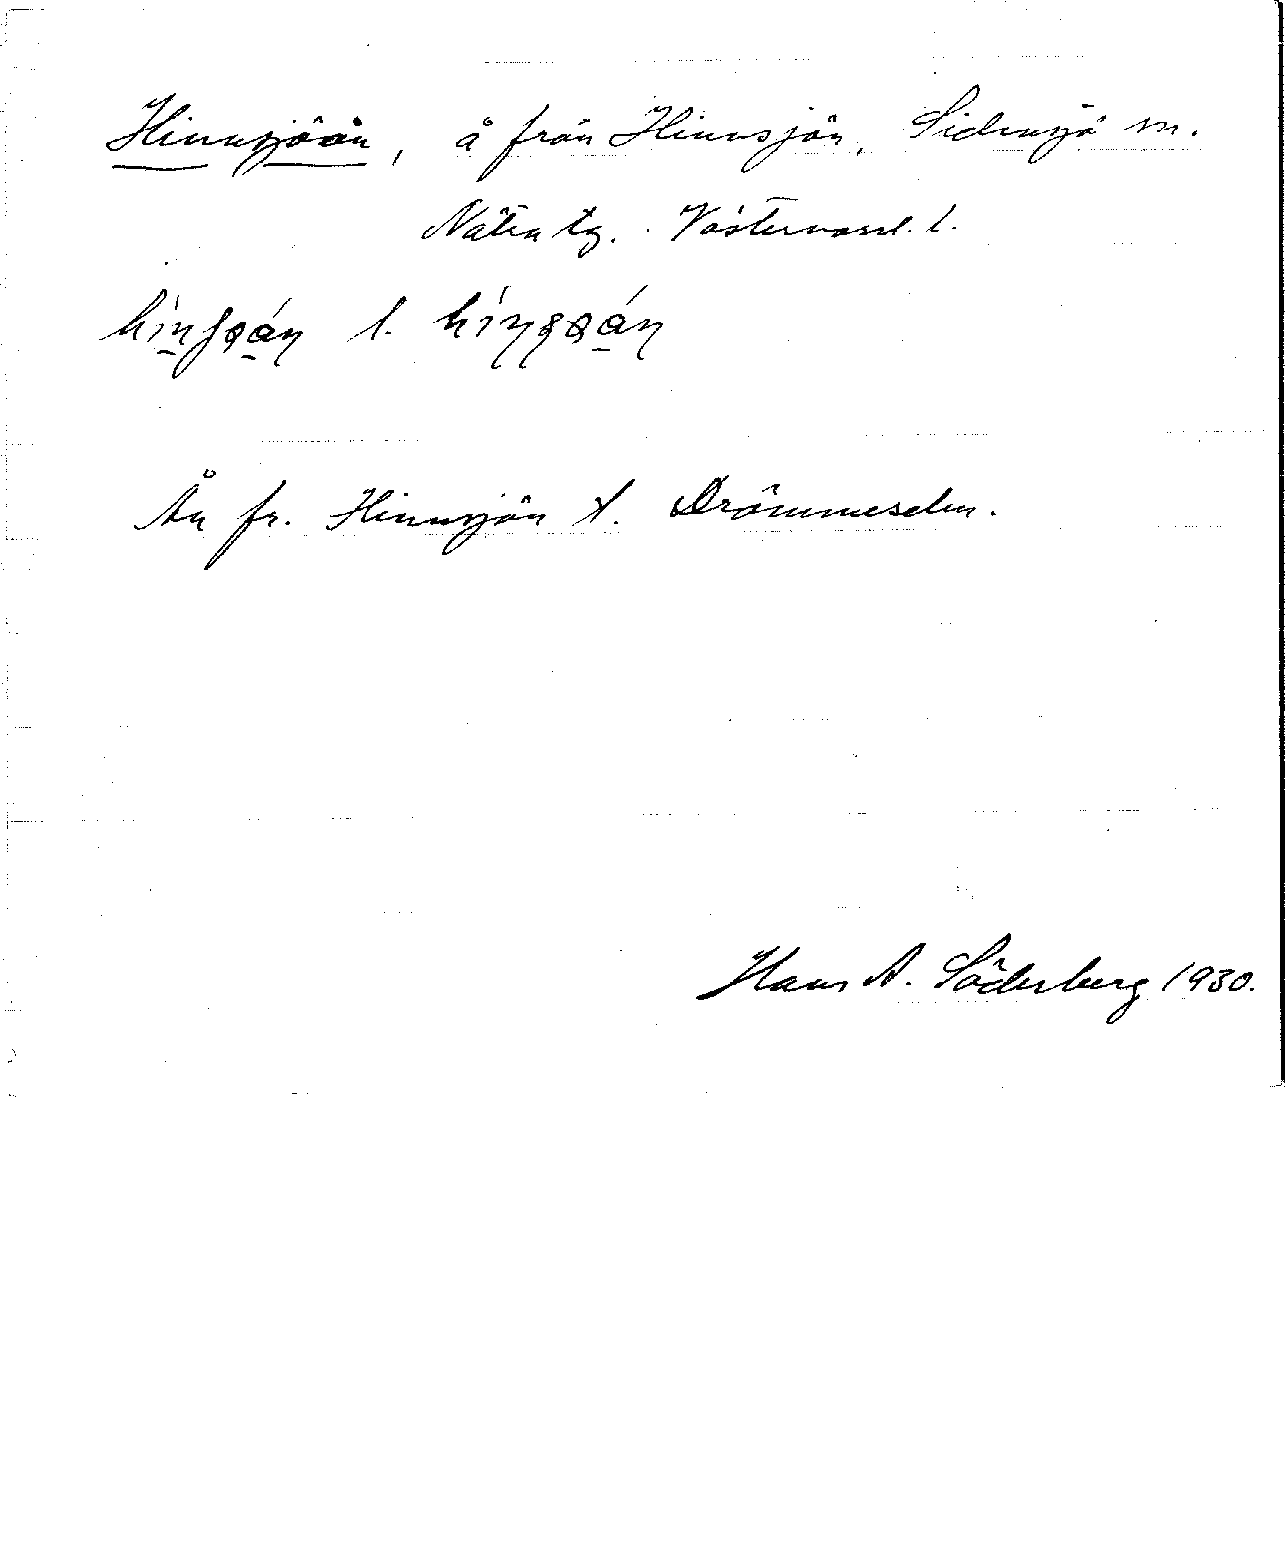 Hinnsjöån, å från Hinnsjön, Sidensjö sn.
Nätra tg. Västernorrl. l.
l.
Ån fr. Hinnsjön t. Drömmeselen.
Hans A. Söderberg 1930.